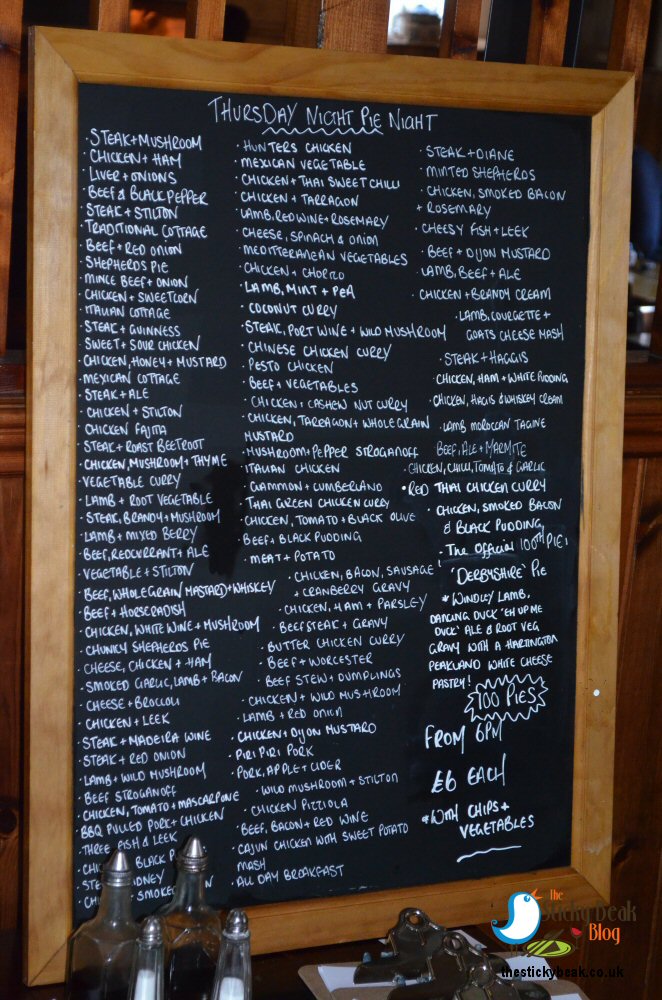 THURSDAY NIGHT PIE NIGHT
· STEAK+MUSHROOM
· CHICKEN + HAM
· LIVER + ONIONS
· BEEF & BLACK PEPPER
· STEAK + STILTON
· TRADITIONAL COTTAGE
· BEEF + RED ONION
· SHEPHERDS PIE
· MINCE BEEF + ONION
· CHICKEN + SWEETCORN
· ITALIAN COTTAGE
· STEAK + GUINNESS
· SWEET + SOUR CHICKEN
· CHICKEN, HONEY + MUSTARD
· MEXICAN COTTAGE
· STEAK + ALE
· CHICKEN + STILTON
· CHICKEN FAJITA
· STEAK + ROAST BEETROOT
· CHICKEN, MUSHROOM + THYME
· VEGETABLE CURRY
· LAMB + ROOT VEGETABLE
· STEAK, BRANDY + MUSHROOM
· LAMB + MIXED BERRY
· BEEF, REDCURRANT + ALE
· VEGETABLE + STILTON
· BEEF, WHOLEGRAIN MASTARD + WHISKEY
· BEEF + HORSERADISH
· CHICKEN, WHITE WINE + MUSHROOM
· CHUNKY SHEPHERDS PIE
· CHEESE, CHICKEN + HAM
· SMOKED GARLIC, LAMB + BACON
· CHEESE + BROCCOLI
· CHICKEN + LEEK
· STEAK + MADEIRA WINE
· STEAK + RED ONION
· LAMB + WILD MUSHROOM
· BEEF STROGANOFF
· CHICKEN, TOMATO + MASCARPONE
· BBQ PULLED PORK + CHICKEN
· THREE FISH & LEEK
BLACK
· HUNTERS CHICKEN
· MEXICAN VEGETABLE
· CHICKEN + THAI SWEET CHILLI
· CHICKEN + TARRAGON
· LAMB, RED WINE + ROSEMARY
· CHEESE, SPINACH & ONION
· MEDITERRANEAN VEGETABLES
· CHICKEN + CHORIZO
· LAMB, MINT + PEA
· COCONUT CURRY
· STEAK, PORT WINE + WILD MUSHROOM
· CHINESE CHICKEN CURRY
· PESTO CHICKEN
· BEEF + VEGETABLES
· CHICKEN + CASHEW NUT CURRY
· CHICKEN, TARRAGON + WHOLE GRAIN
MUSTARD
· MUSHROOM + PEPPER STROGANOFF
· ITALIAN CHICKEN
· GAMMON + CUMBERLAND
· THAI GREEN CHICKEN CURRY
· CHICKEN, TOMATO + BLACK OLIVE
· BEEF + BLACK PUDDING
· MEAT + POTATO
· CHICKEN, BACON, SAUSAGE
+ CRANBERRY GRAVY
· CHICKEN, HAM + PARSLEY
· BEEFSTEAK + GRAVY
· BUTTER CHICKEN CURRY
· BEEF + WORCESTER
· BEEF STEW + DUMPLINGS
· CHICKEN + WILD MUSHROOM
· LAMB + RED ONION
· CHICKEN + DIJON MUSTARD
· PIRI PIRI PORK
· PORK, APPLE + CIDER
· WILD MUSHROOM + STILTON
· CHICKEN PIZZIOLA
· BEEF, BACON + RED WINE
· CAJUN CHICKEN WITH SWEET POTATO
MASH
· ALL DAY BREAKFAST
· STEAK + DIANE
· MINTED SHEPHERDS
· CHICKEN, SMOKED BACON
+ ROSEMARY
· CHEESY FISH + LEEK
· BEEF + DIJON MUSTARD
· LAMB, BEEF + ALE
· CHICKEN + BRANDY CREAM
· LAMB, COURGETTE +
GOATS CHEESE MASH
· STEAK + HAGGIS
· CHICKEN, HAM + WHITE PUDDING
· CHICKEN, HAGIS & WHISKEY CREAM
· LAMB MOROCCAN TAGINE
BEEF, ALE + MARMITE
· CHICKEN, CHILLI, TOMATO & GARLIC
· RED THAI CHICKEN CURRY
· CHICKEN, SMOKED BACON
& BLACK PUDDING
- THE OFFICIAL 100TH PIE!
'DERBYSHIRE' PIE
* WINDLEY LAMB,
DANCING DUCK 'EH UP ME
DUCK' ALE & ROOT VEG
GRAVY WITH A HARTINGTON
PEAKLAND WHITE CHEESE
PASTRY!
100 PIES
FROM 6PM
£6 EACH
*WITH CHIPS +
VEGETABLES
The
Sticky Beak
Blog
thestickybeak.co.uk